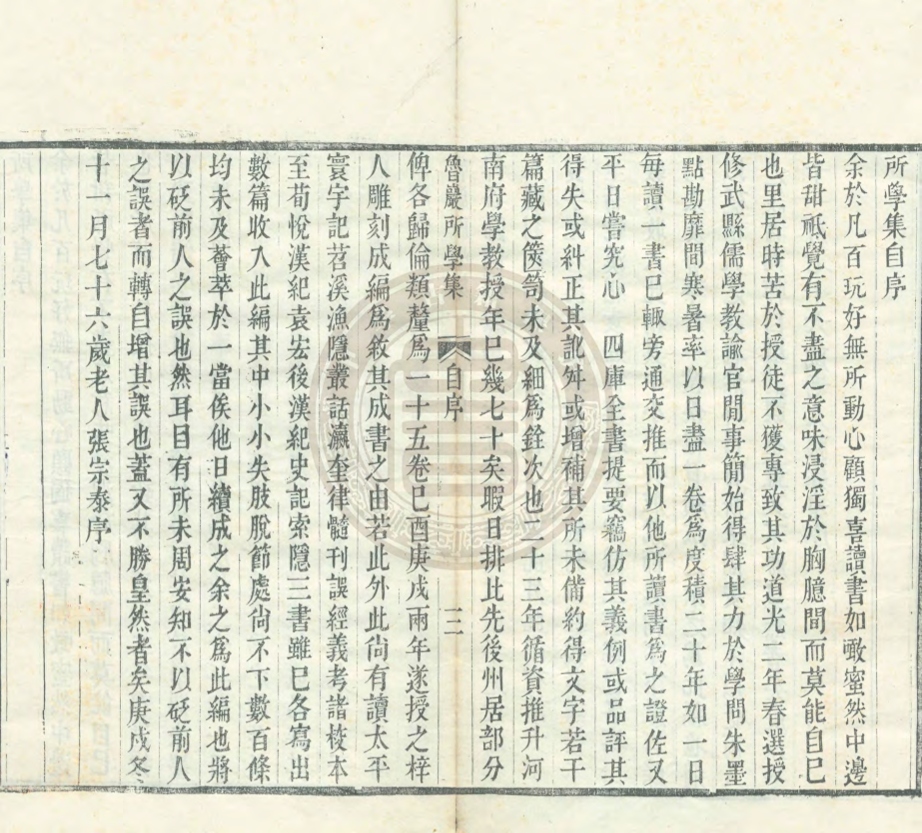 所學集自序
余於凡百玩好無所動心顧獨喜讀書如噉蜜然中邊
皆甜祗覺有不盡之意味浸淫於胸臆間而莫能自已
也里居時苦於授徒不獲專致其功道光二年春選授
修武縣儒學教諭官閒事簡始得肆其力於學問朱墨
點勘靡間寒暑率以日盡一卷為度積二十年如一日
每讀一書已輙旁通交推而以他所讀書為之證佐又
平日嘗究心 四庫全書提要竊仿其義例或品評其
得失或糾正其訛舛或增補其所未備約得文字若干
篇藏之篋笥未及細為銓次也二十三年循資推升河
南府學教授年已幾七十矣暇日排比先後州居部分
魯巖所學集 自序 二
俾各歸倫類釐為一十五卷巳酉庚戌兩年遂授之梓
人雕刻成編為敘其成書之由若此外此尙有讀太平
寰宇記苕溪漁隱叢話瀛奎律髓刊誤經義考諸校本
至荀悅漢紀袁宏後漢紀史記索隱三書雖巳各寫出
數篇收入此編其中小小失肢脫節處尙不下數百條
均未及薈萃於一當俟他日續成之余之為此編也將
以砭前人之誤也然耳目有所未周安知不以砭前人
之誤者而轉自增其誤也蓋又不勝皇然者矣庚戌冬
十一月七十六歲老人張宗泰序